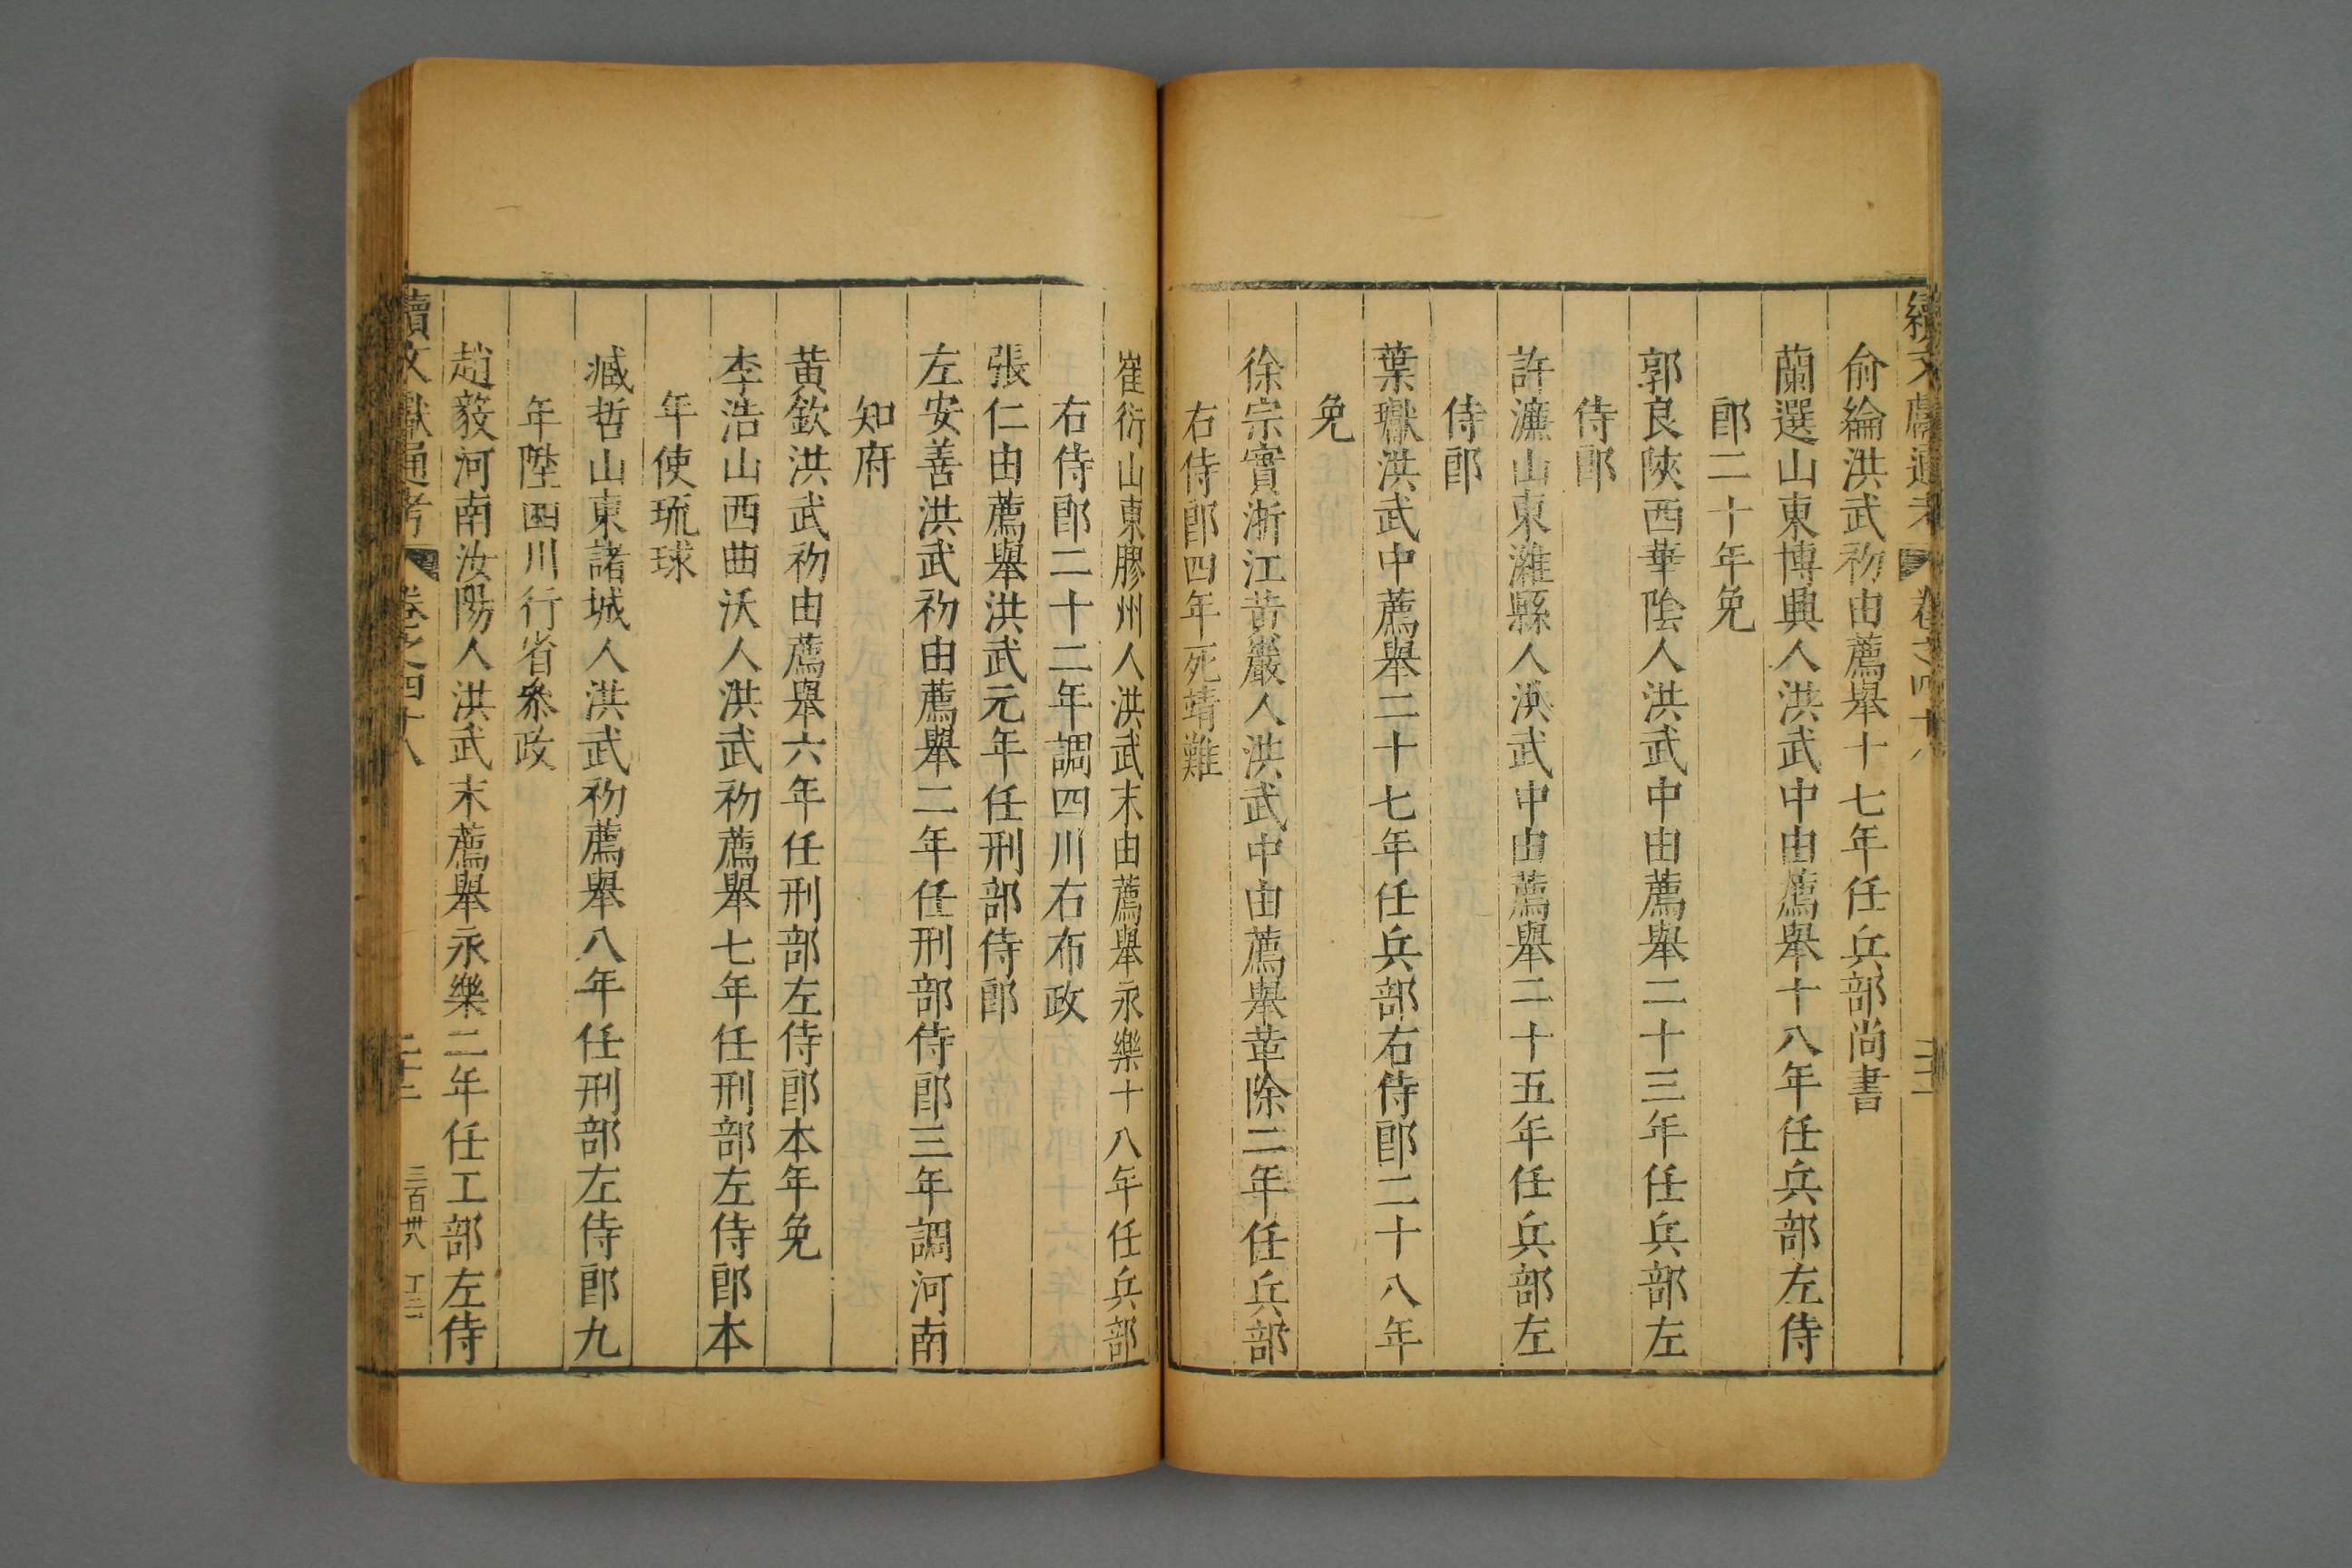 續文獻通考 卷之四十八
俞綸洪武初由薦舉十七年任兵部尚書
蘭選山東博興人洪武中由薦舉十八年任兵部左侍
郎二十年免
郭良陝西華陰人洪武中由薦舉二十三年任兵部左
侍郎
許濂山東濰縣人洪武中由薦舉二十五年任兵部左
侍郎
葉瓛洪武中薦舉二十七年任兵部右侍郎二十八年
免
徐宗實浙江黃巖人洪武中由薦舉革除二年任兵部
右侍郎四年死靖難
崔衍山東膠州人洪武末由薦舉永樂十八年任兵部
右侍郎二十二年調四川右布政
張仁由薦舉洪武元年任刑部侍郎
左安善洪武初由薦舉二年任刑部侍郎三年調河南
知府
黃欽洪武初由薦舉六年任刑部左侍郎本年免
李浩山西曲沃人洪武初薦舉七年任刑部左侍郎本
年使琉球
臧哲山東諸城人洪武初薦舉八年任刑部左侍郎九
年陞四川行省叅政
趙毅河南汝陽人洪武末薦舉永樂二年任工部左侍
續文獻通考 卷之四十八 三百卅八